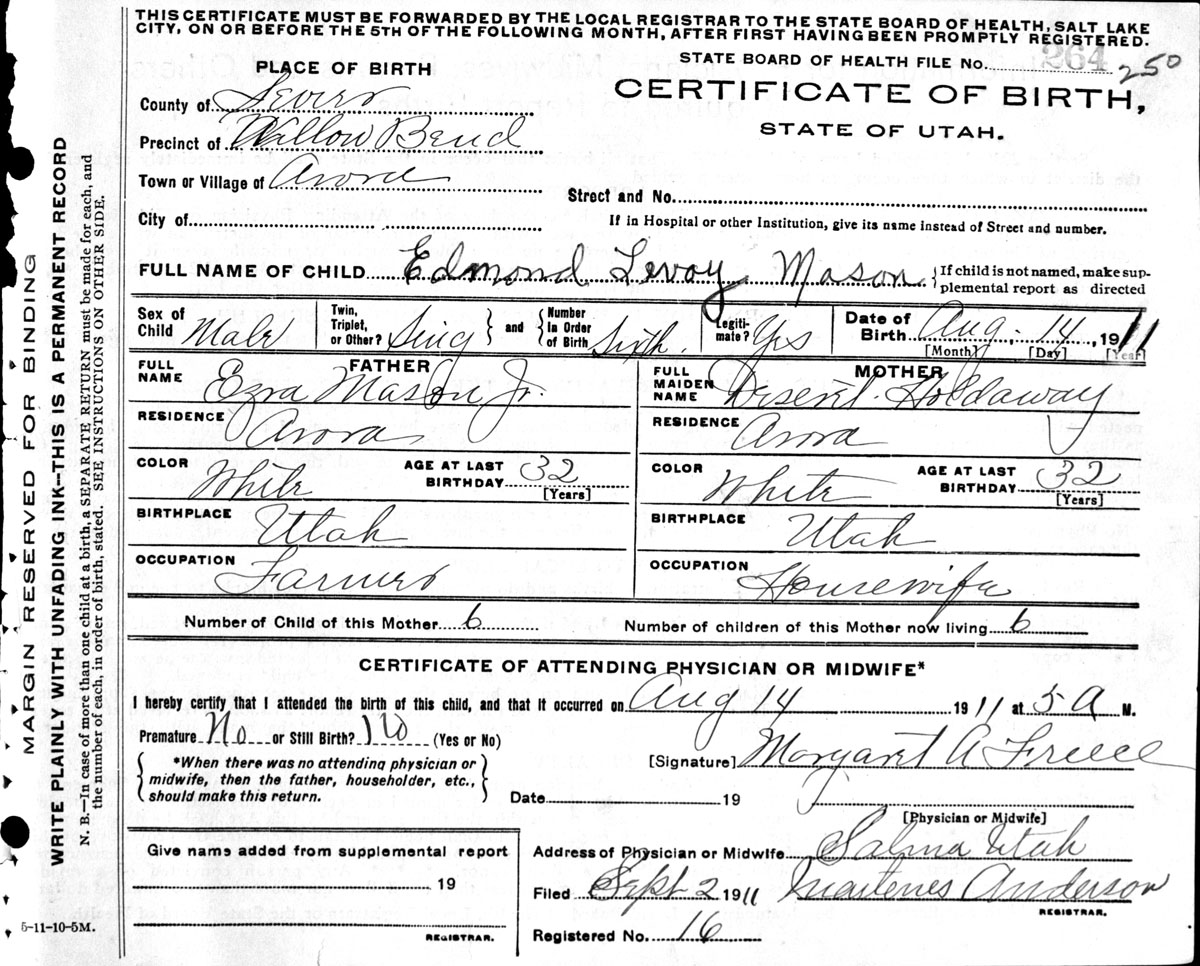 THIS CERTIFICATE MUST BE FORWARDED BY THE LOCAL REGISTRAR TO THE STATE BOARD OF HEALTH, SALT LAKE
CITY, ON OR BEFORE THE 5TH OF THE FOLLOWING MONTH, AFTER FIRST HAVING BEEN PROMPTLY REGISTERED.
STATE BOARD OF HEALTH FILE No. 264 250
PLACE OF BIRTH
CERTIFICATE OF BIRTH,
STATE OF UTAH.
County of Sevier
Precinct of Willow Bend
Town or Village of Arora
Street and No.
City of
If in Hospital or other Institution, give its name instead of Street and number.
FULL NAME OF CHILD Edmond Levoy Mason { If child is not named, make sup-
plemental report as directed
Sex of Child Male
Twin, Triplet, or Other? Sing } and { Number In Order of Birth Sixth.
Legiti-mate? Yes
Date of Birth Aug. 14 1911
[Month] [Day] [Year]
FATHER
FULL NAME Ezra Mason Jr.
RESIDENCE Arora
COLOR White AGE AT LAST BIRTHDAY 32 [Years]
BIRTHPLACE Utah
OCCUPATION Farmer
MOTHER
FULL MAIDEN NAME Diseret Holdaway
RESIDENCE Arora
COLOR White AGE AT LAST BIRTHDAY 32 [Years]
BIRTHPLACE Utah
OCCUPATION Housewife
Number of Child of this Mother 6 Number of children of this Mother now living 6
CERTIFICATE OF ATTENDING PHYSICIAN OR MIDWIFE*
I hereby certify that I attended the birth of this child, and that it occurred on Aug 14 1911 at 5 A M.
Premature No or Still Birth? No (Yes or No)
{ *When there was no attending physician or
midwife, then the father, householder, etc.,
should make this return. }
[Signature] Margaret A
Date 19
[Physician or Midwife]
Give name added from supplemental report
19
REGISTRAR.
Address of Physician or Midwife Salina Utah
Filed Sept 2 1911 Anderson
REGISTRAR.
Registered No. 16
5-11-10-5M.
MARGIN RESERVED FOR BINDING
WRITE PLAINLY WITH UNFADING INK—THIS IS A PERMANENT RECORD
N. B.—In case of more than one child at a birth, a SEPARATE RETURN must be made for each, and
the number of each, in order of birth, stated. SEE INSTRUCTIONS ON OTHER SIDE.